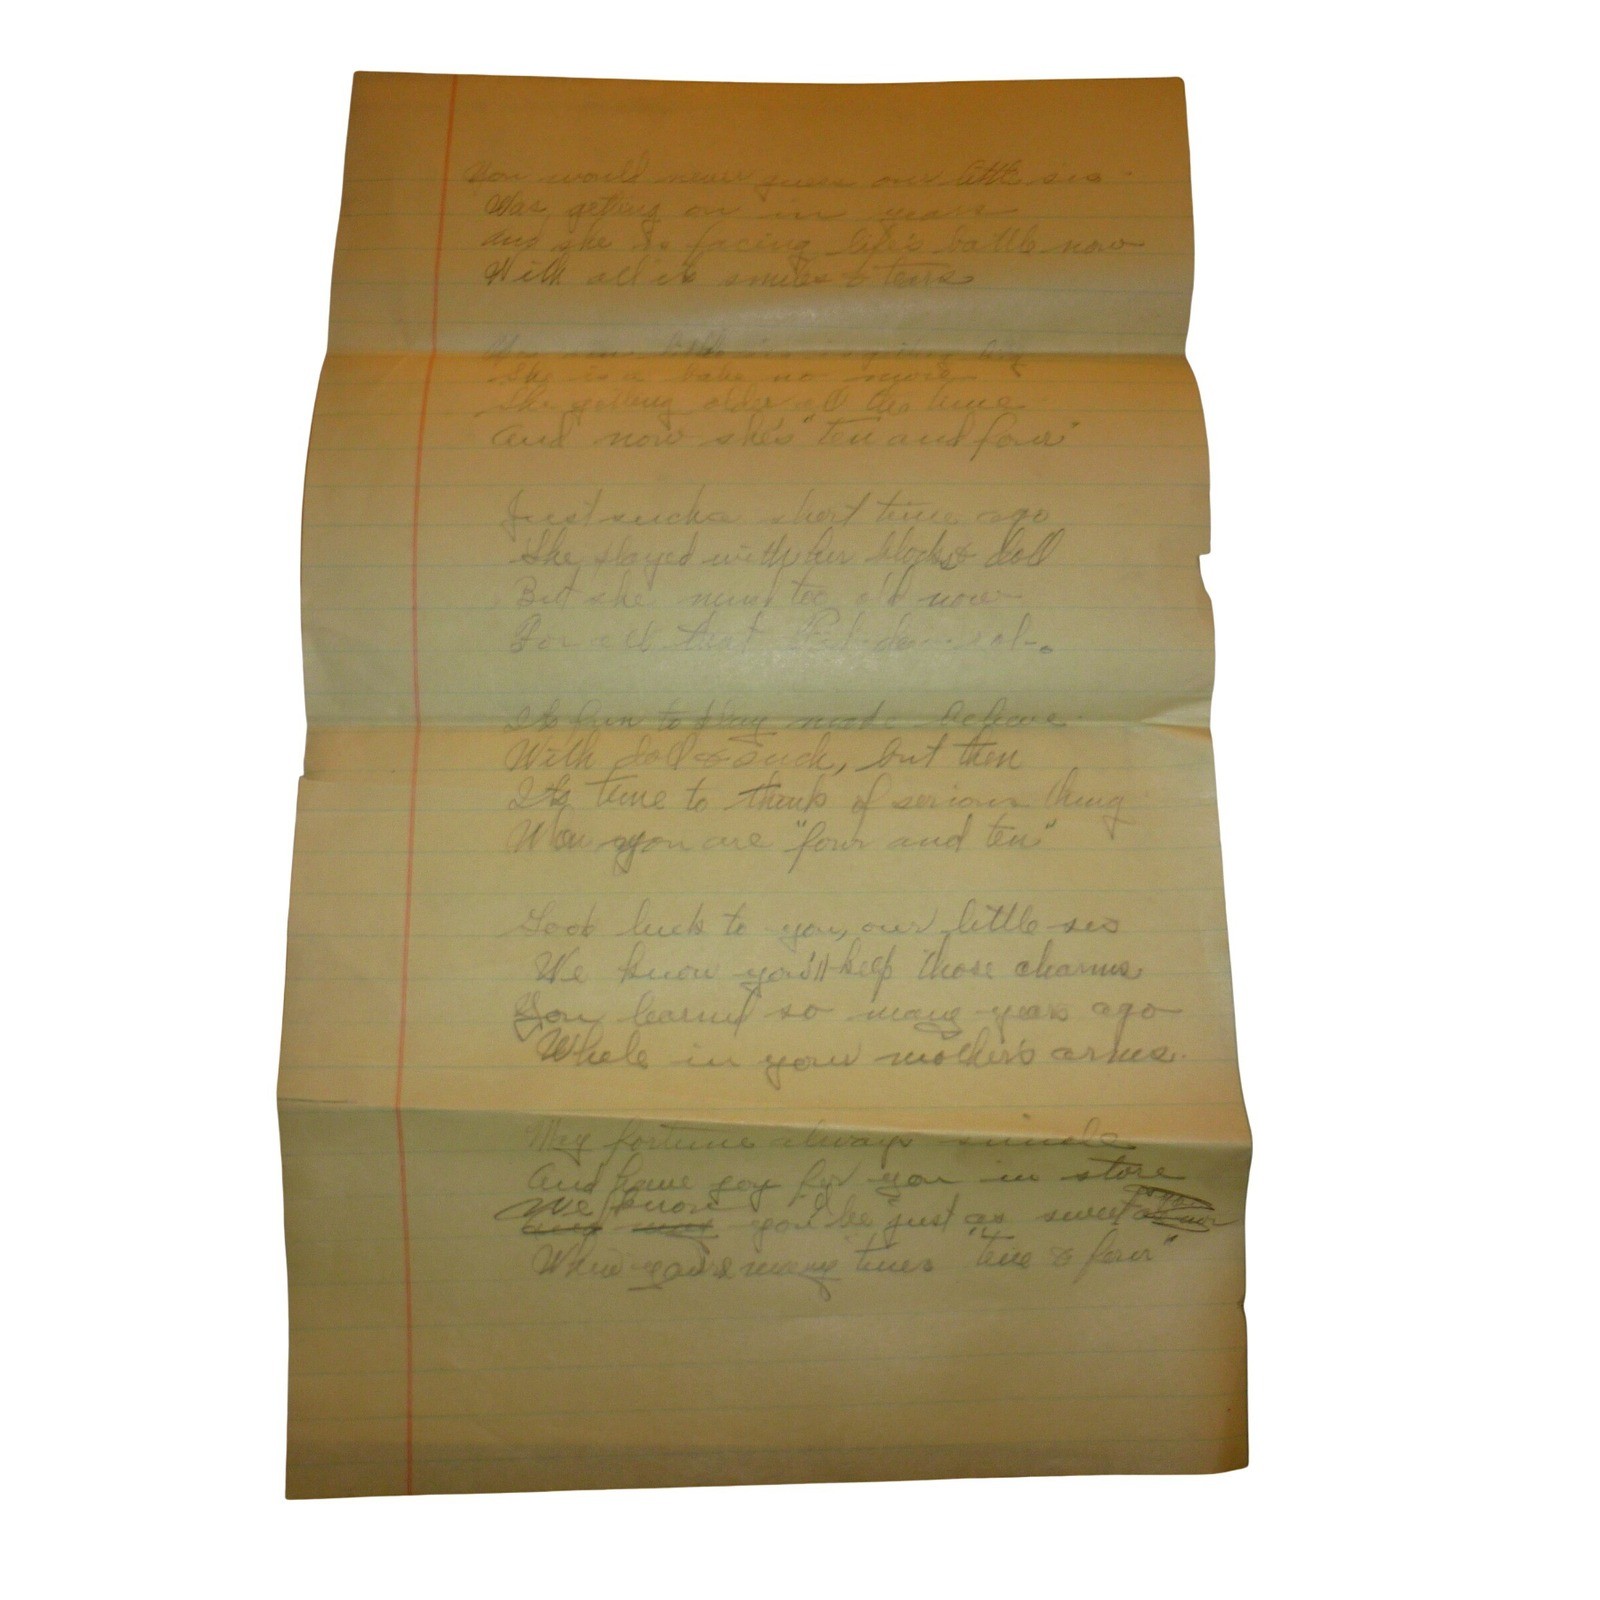 You would never guess our little sis
Was getting on in years
And she is facing life's battle now
With all its smiles & tears
little sis is getting big
She is a babe no more
She getting older all the time
And now she's "ten and four"
Just such a short time ago
She played with her blocks & doll
But she too old now
For all that
Its fun to play make believe
With doll & such, but then
Its time to think of serious thing
you are "four and ten"
Good luck to you, our little sis
We know you'll keep those charms
You learned so many years ago
While in your mother's arms.
May fortune always smile
And have joy for you in store
We know
you'll be just as sweet
When your many times "ten & four"